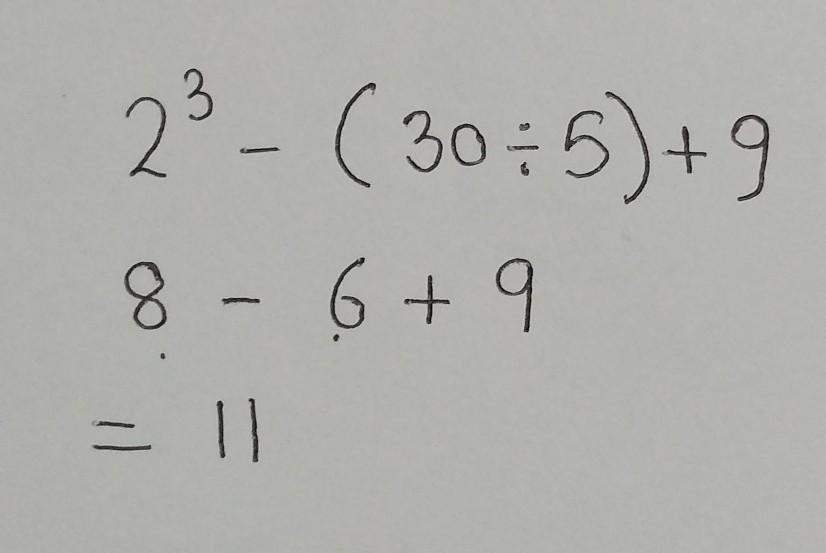 2³ - (30÷5)+9
8 - 6 + 9
= 11